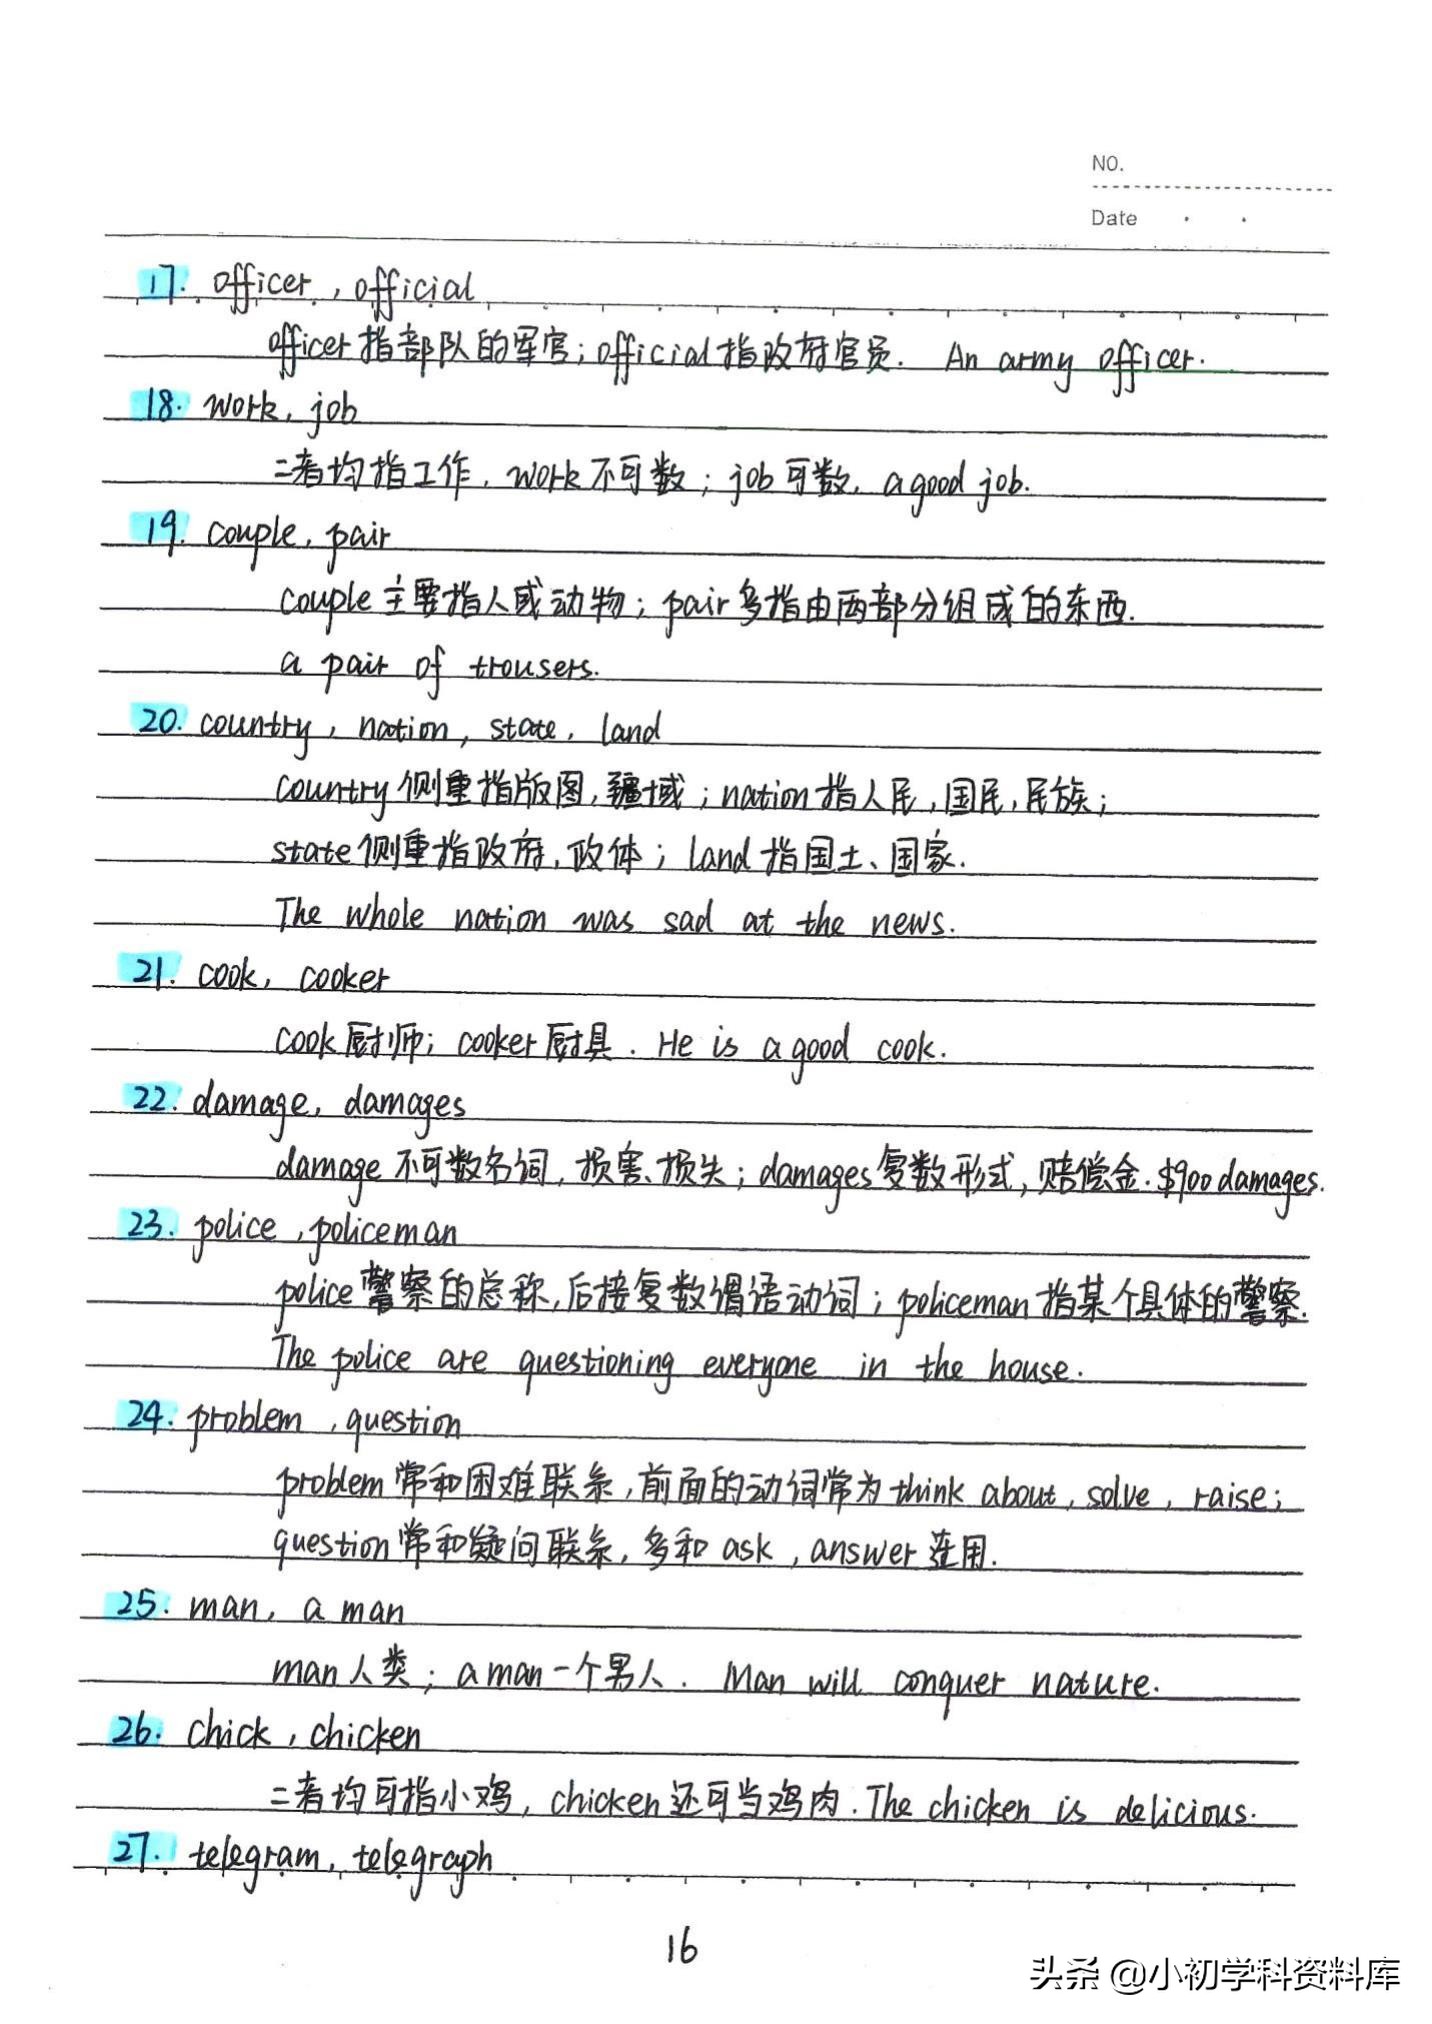 NO.
Date
17. officer, official
officer指部队的军官；official指政府官员. An army officer.
18. work, job
二者均指工作, work不可数；job可数, a good job.
19. couple, pair
couple主要指人或动物；pair多指由两部分组成的东西.
a pair of trousers.
20. country, nation, state, land
country侧重指版图,疆域；nation指人民,国民,民族；
state侧重指政府,政体；land指国土、国家.
The whole nation was sad at the news.
21. cook, cooker
cook厨师；cooker厨具. He is a good cook.
22. damage, damages
damage不可数名词,损害、损失；damages复数形式,赔偿金. $900 damages.
23. police, policeman
police警察的总称,后接复数谓语动词；policeman指某个具体的警察.
The police are questioning everyone in the house.
24. problem, question
problem常和困难联系,前面的动词常为think about, solve, raise；
question常和疑问联系,多和ask, answer连用.
25. man, a man
man人类；a man一个男人. Man will conquer nature.
26. chick, chicken
二者均可指小鸡, chicken还可当鸡肉. The chicken is delicious.
27. telegram, telegraph
16
头条 @小初学科资料库